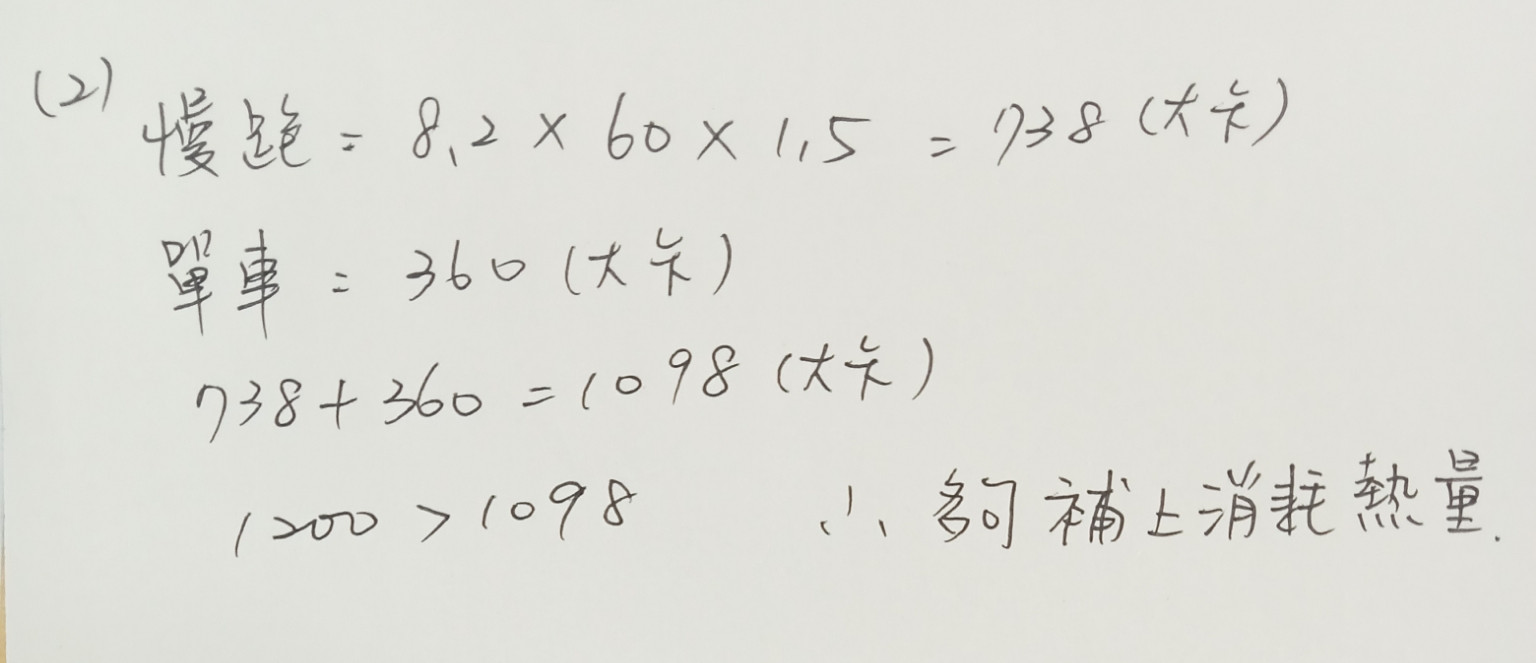 (2) 慢跑 = 8.2 × 60 × 1.5 = 738 (大卡)
單車 = 360 (大卡)
738 + 360 = 1098 (大卡)
1200 > 1098 ∴ 夠補上消耗熱量.